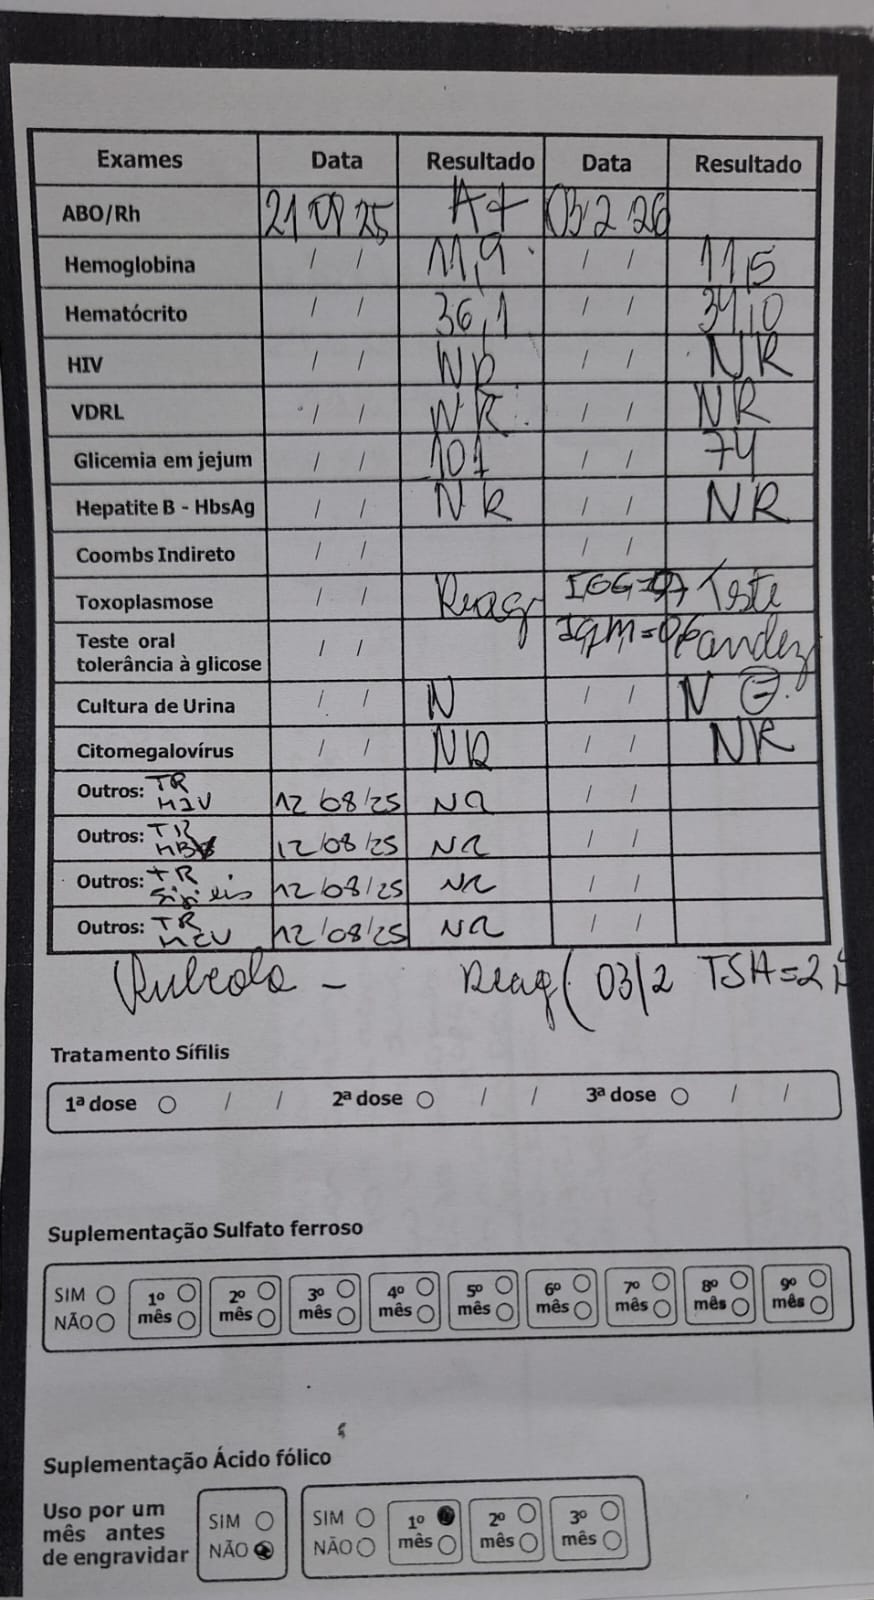 Exames Data Resultado Data Resultado
ABO/Rh 21 08 25 A+ 03 2 26
Hemoglobina / / 11,9 / / 11,5
Hematócrito / / 36,1 / / 34,0
HIV / / NR / / NR
VDRL / / NR / / NR
Glicemia em jejum / / 101 / / 74
Hepatite B - HbsAg / / NR / / NR
Coombs Indireto / / / /
Toxoplasmose / / Reag IGG= Teste
Teste oral IgM=
tolerância à glicose / /
Cultura de Urina / / N / / N ⊖
Citomegalovírus / / NR / / NR
Outros: TR HIV 12/08/25 NR / /
Outros: TR 12/08/25 NR / /
Outros: TR Sifilis 12/08/25 NR / /
Outros: TR HCV 12/08/25 NR / /
Rubeola - Reag ( 03/2 TSH=2,
Tratamento Sífilis
1ª dose / / 2ª dose / / 3ª dose / /
Suplementação Sulfato ferroso
SIM 1º 2º 3º 4º 5º 6º 7º 8º 9º
NÃO mês mês mês mês mês mês mês mês mês
Suplementação Ácido fólico
Uso por um
mês antes
de engravidar
SIM
NÃO
SIM 1º 2º 3º
NÃO mês mês mês